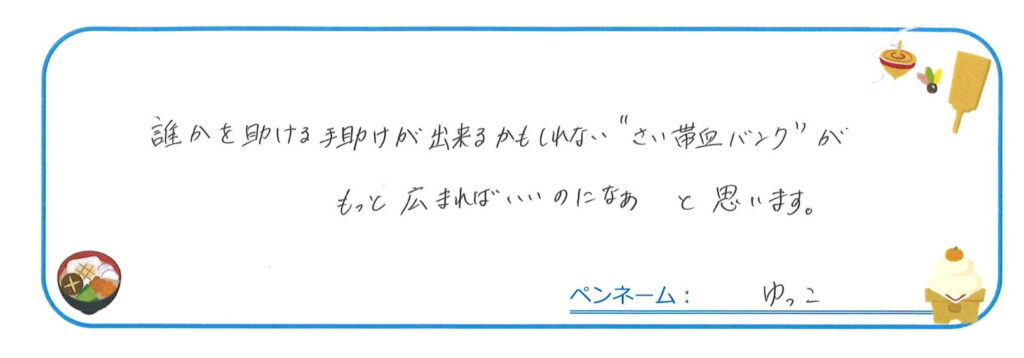 誰かを助ける手助けが出来るかもしれない“さい帯血バンク”が
もっと広まればいいのになぁ と思います。
ペンネーム： ゆっこ